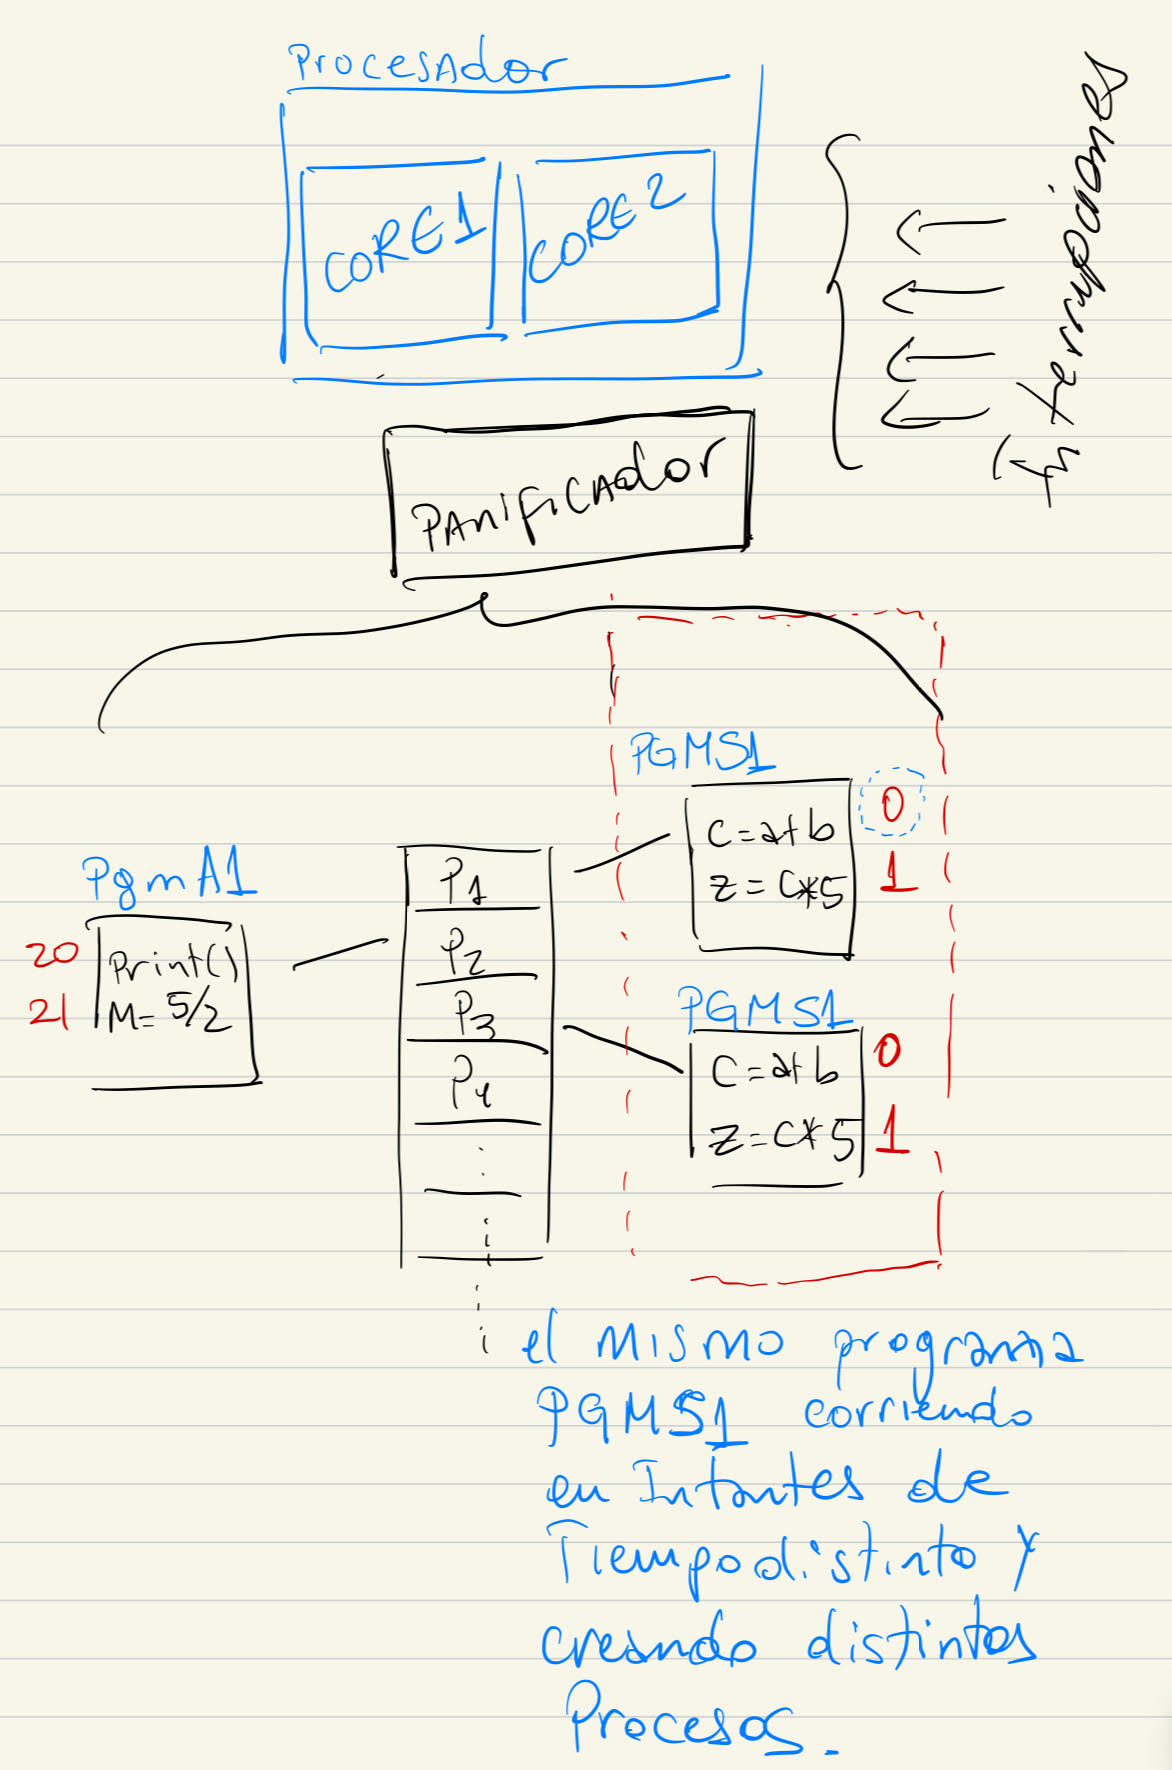 Procesador
CORE1
CORE2
Interrupciones
PAnificador
PGMS1
C=a+b
0
Z=C*5
1
PgmA1
20
Print()
21
M=5/2
P1
P2
P3
P4
PGMS1
C=a+b
0
Z=C*5
1
el mismo programa
PGMS1 corriendo
en Intantes de
Tiempo distinto y
creando distintos
Procesos.